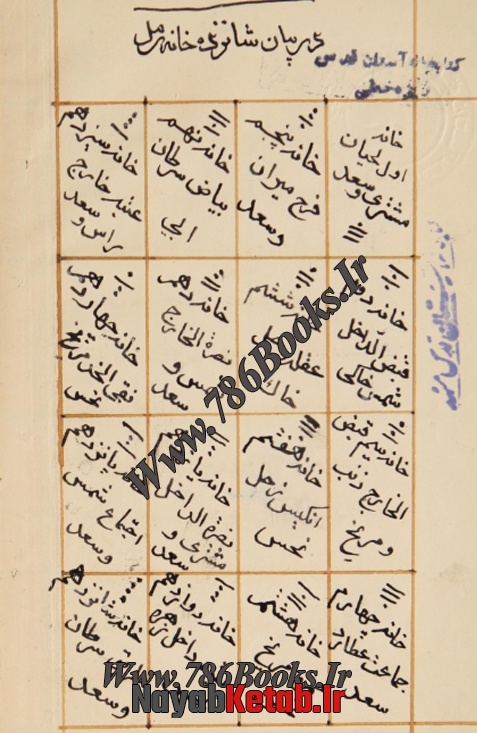 در بیان شانزده خانه رمل
کتابخانه آستان قدس
خانه
اول لحیان
مشتری و سعد
خانه پنجم
فرح میزان
و سعد
خانه نهم
بیاض سرطان
ابی
خانه سیزدهم
عتبه خارج
راس و سعد
خانه
قبض الداخل
شمس خاکی
ششم
عقله زحل
خاک
خانه دهم
نصرة الخارج
شمس و
سعد
خانه چهاردهم
نقی الخد مریخ
نحس
خانه سیم قبض
الخارج ذنب
و مریخ
خانه هفتم
انکیس زحل
نحس
خانه
نصرة الداخل
مشتری و
سعد
پانزدهم
اجتماع شمس
و سعد
خانه چهارم
جماعت عطارد
سعد
خانه هشتم
خانه دوازدهم
داخل زهره
خانه شانزدهم
سرطان
و سعد
Www.786Books.Ir
Www.786Books.Ir
NayabKetab.Ir